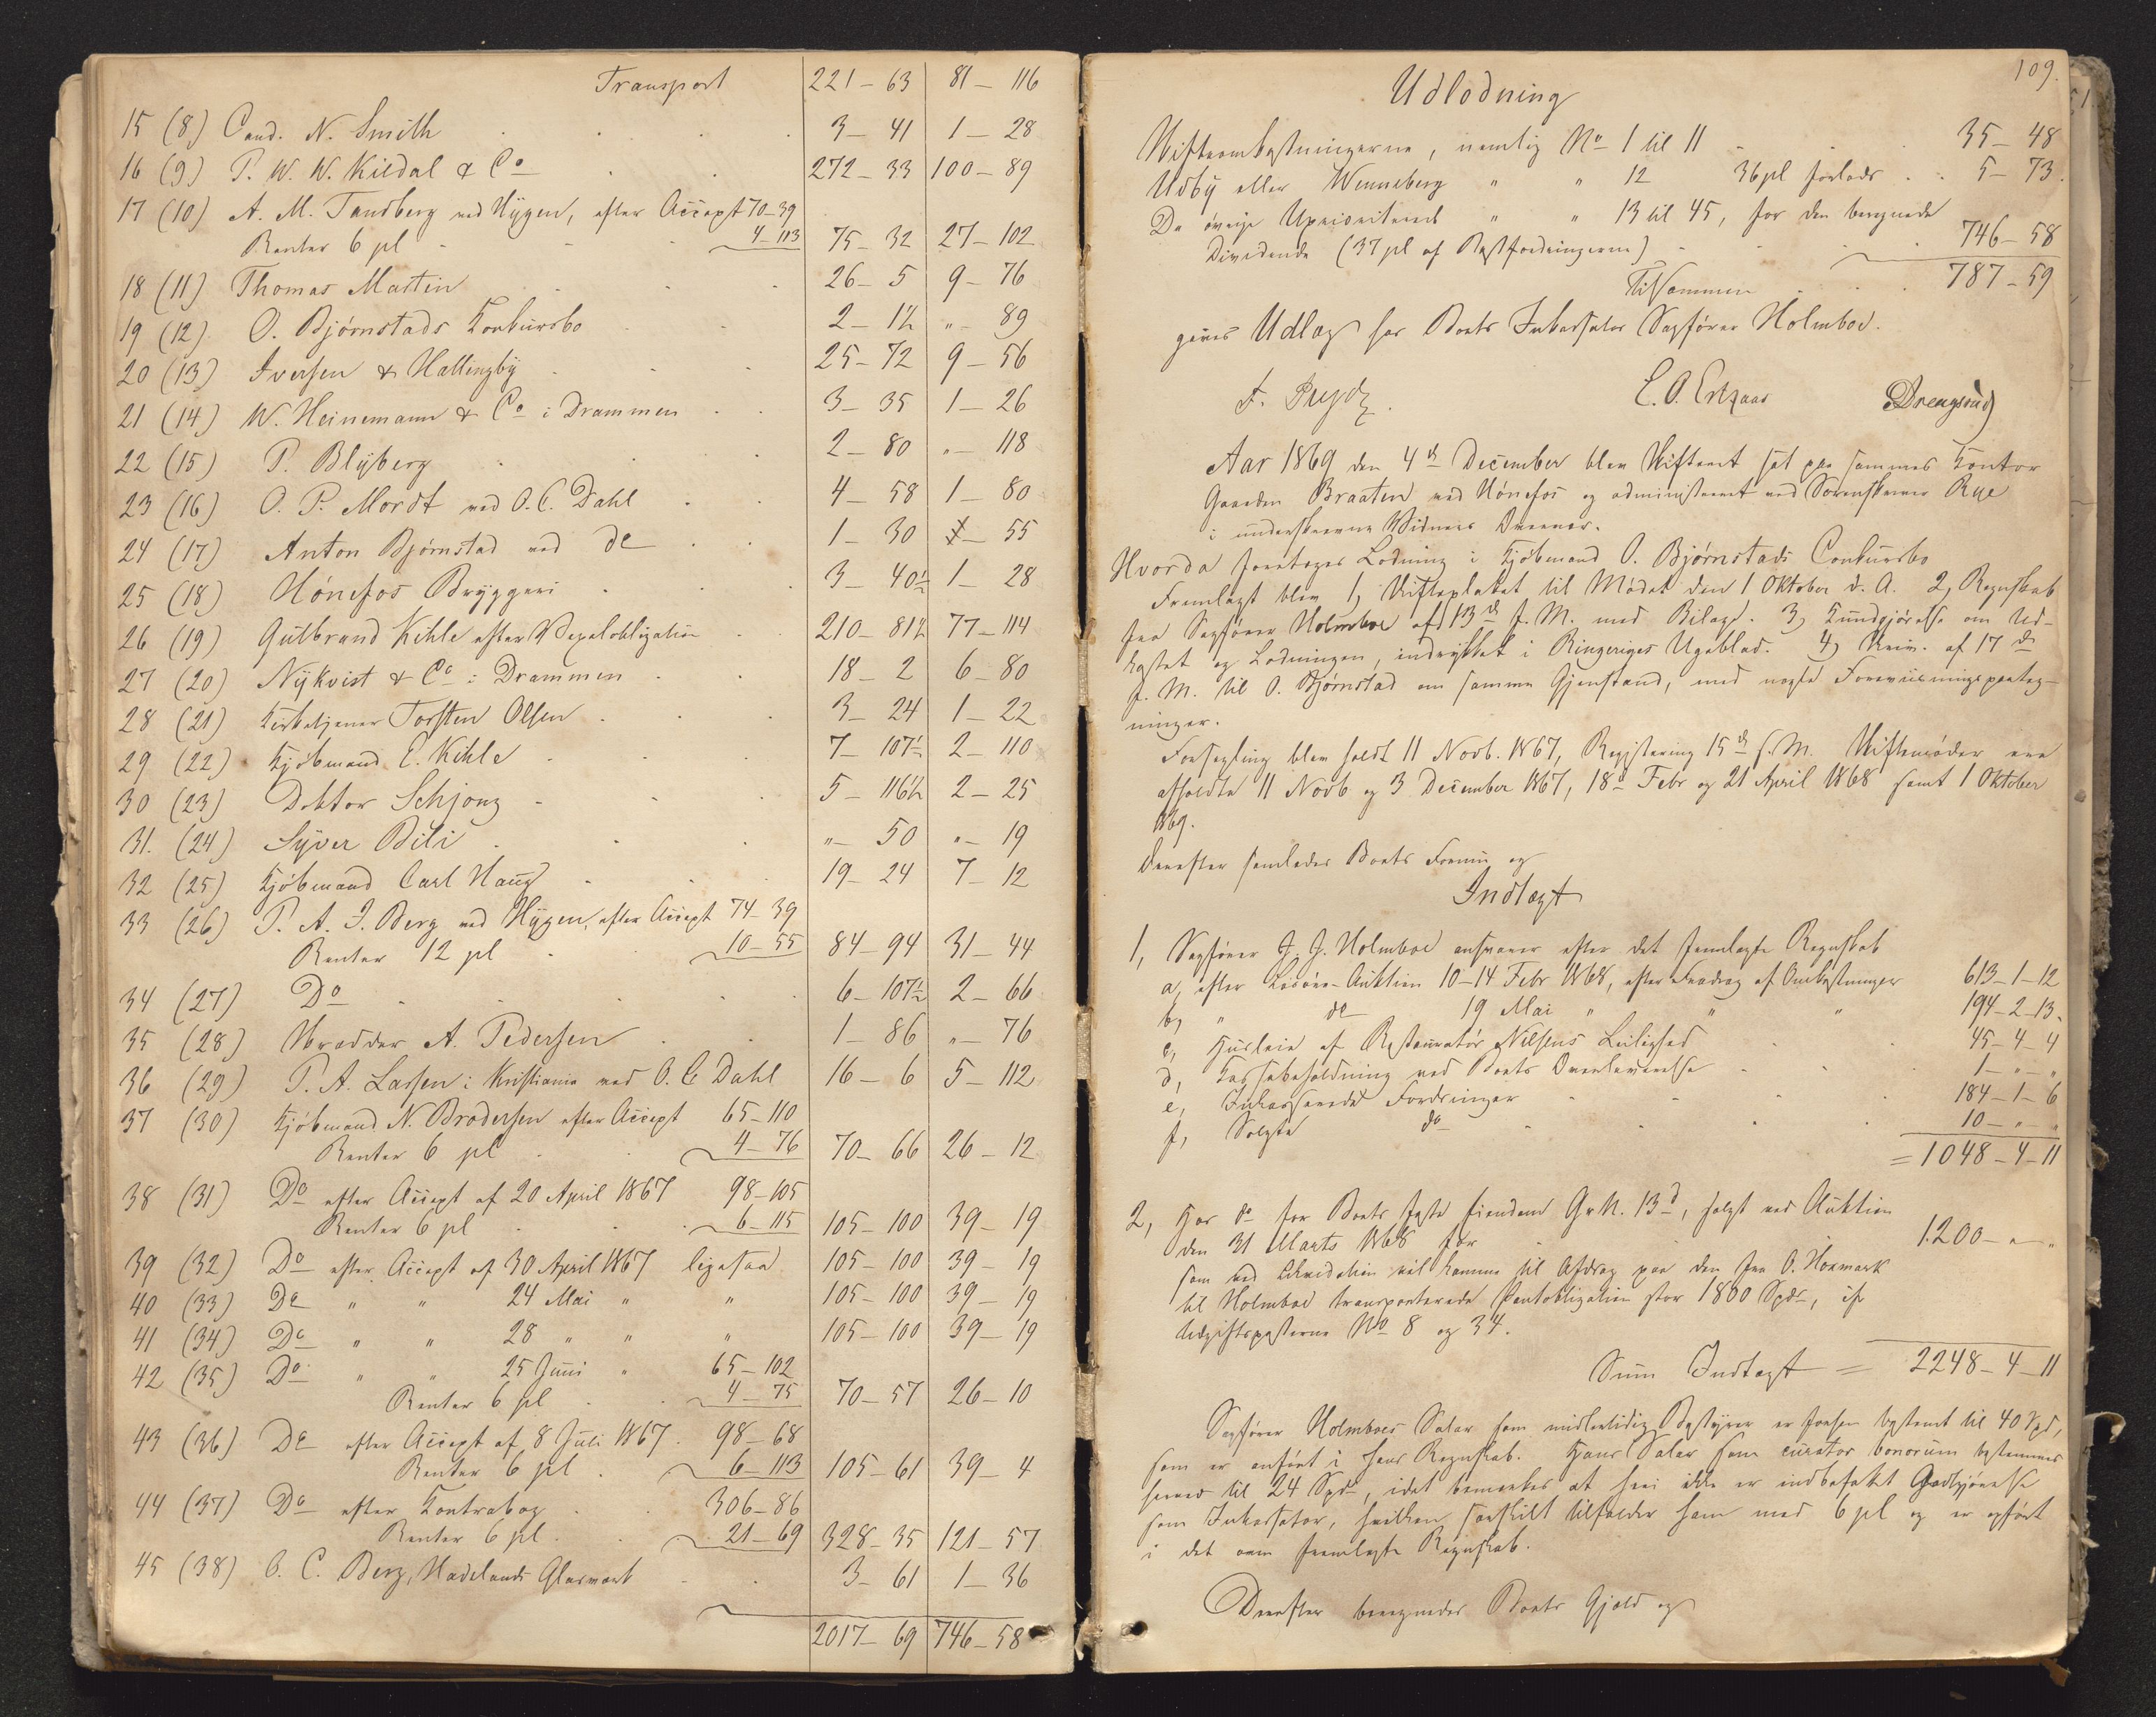 Transport 221 - 63 81 - 116
15 (8) Cand. N. Smith 3 - 41 1 - 28
16 (9) P. W. W. Kildal & Co 272 - 33 100 - 89
17 (10) A. M. Tandberg ved Hygen, efter Accept 70 - 39
Renter 6 pC 4 - 113 75 - 32 27 - 102
18 (11) Thomas Martin 26 - 5 9 - 76
19 (12) O. Bjørnstads Konkursbo 2 - 1½ " - 89
20 (13) Iversen & Hallingby 25 - 72 9 - 56
21 (14) W. Heinemann & Co i Drammen 3 - 35 1 - 26
22 (15) P. Blyberg 2 - 80 " - 118
23 (16) O. P. Mordt ved O. C. Dahl 4 - 58 1 - 80
24 (17) Anton Bjørnstad ved do 1 - 30 - 55
25 (18) Hønefos Bryggeri 3 - 40½ 1 - 28
26 (19) Gulbrand Kihle efter Vexelobligation 210 - 81½ 77 - 114
27 (20) Nykvist & Co i Drammen 18 - 2 6 - 80
28 (21) Kirketjener Torsten Olsen 3 - 24 1 - 22
29 (22) Kjøbmand E. Kihle 7 - 107½ 2 - 110
30 (23) Doktor Schjong 5 - 116½ 2 - 25
31. (24) Syver Bili " - 50 " - 19
32 (25) Kjøbmand Carl Haug 19 - 24 7 - 12
33 (26) P. A. J. Berg ved Hygen, efter Accept 74 - 39
Renter 12 pC 10 - 55 84 - 94 31 - 44
34 (27) Do 6 - 107½ 2 - 66
35 (28) Skrædder A. Pedersen 1 - 86 " - 76
36 (29) P. A. Larsen i Kristiania ved O. C. Dahl 16 - 6 5 - 112
37 (30) Kjøbmand N. Brodersen efter Accept 65 - 110
Renter 6 pC 4 - 76 70 - 66 26 - 12
38 (31) Do efter Accept af 20 April 1867 98 - 105
Renter 6 pC 6 - 115 105 - 100 39 - 19
39 (32) Do efter Accept af 30 April 1867 ligesaa 105 - 100 39 - 19
40 (33) Do " " 24 Mai " " 105 - 100 39 - 19
41 (34) Do " " 28 " " " 105 - 100 39 - 19
42 (35) Do " " 25 Juni " 65 - 102
Renter 6 pC 4 - 75 70 - 57 26 - 10
43 (36) Do efter Accept af 8 Juli 1867. 98 - 68
Renter 6 pC 6 - 113 105 - 61 39 - 4
44 (37) Do efter Kontrabog 306 - 86
Renter 6 pC 21 - 69 328 - 35 121 - 57
45 (38) O. C. Berg, Hadelands Glasværk 3 - 61 1 - 36
2017 - 69 746 - 58
109.
Udlodning
Skifteomkostningerne, nemlig No 1 til 11 35 - 48
Udby eller Wenneberg " " 12 36 pC forlods 5 - 73.
De øvrige Uprioriterede " " 13 til 45, for den beregnede
Dividende (37 pC af Restfordringerne) 746 - 58
Tilsammen 787 - 59
gives Udlæg hos Boets Inkassator Sagfører Holmboe.
F. Prydz. Drengsrud
Aar 1869 den 4de December blev Skifteret sat paa sammes Kontor
Gaarden Braaten ved Hønefos og administreret ved Sorenskriver Rye
i underskrevne Vidners Overvær.
Hvorda foretoges Lodning i Kjøbmand O. Bjørnstads Conkursbo
Fremlagt blev 1, Skifteplakat til Mødet den 1 Oktober d. A. 2, Regnskab
fra Sagfører Holmboe af 13de f. M. med Bilage. 3, Kundgjørelse om Ud-
kastet og Lodningen, indrykket i Ringeriges Ugeblad. 4, Skriv. af 17de
f. M. til O. Bjørnstad om samme Gjenstand, med nogle Foreviisningspaateg-
ninger.
Forsegling blev holdt 11 Novb. 1867, Registrering 15de s. M. Skiftemøder ere
afholdte 11 Novb og 3 December 1867, 18de Febr og 21 April 1868 samt 1 Oktober
1869.
Derefter samledes Boets Formue og
Indtægt
1, Sagfører J. G. Holmboe ansvarer efter det fremlagte Regnskab
a, efter Løsøre-Auktion 10-14 Febr 1868, efter Fradrag af Omkostninger 613 - 1 - 12
b, " do 19 Mai " " " 194 - 2 - 13.
c, Husleie af Restauratør Nilsens Leilighed 45 - 4 - 4
d, Kassebeholdning ved Boets Overleverelse 1 - " - "
e, Inkasserede Fordringer 184 - 1 - 6
f, Solgte do 10 - " - "
= 1048 - 4 - 11
2, Hos do for Boets faste Eiendom Gr. N. 13d, solgt ved Auktion
den 31 Marts 1868 for 1200 - " - "
som ved Likvidation vil komme til Afdrag paa den fra O. Hoxmark
til Holmboe transporterede Pantobligation stor 1800 Spdr, cfr
Udgiftsposterne No 8 og 34.
Sum Indtægt = 2248 - 4 - 11
Sagfører Holmboes Salær som midlertidig Bestyrer er forhen bestemt til 40 Spd,
som er anført i hans Regnskab. Hans Salær som curator bonorum bestemmes
herved til 24 Spdr, idet bemærkes at heri ikke er indbefattet Godtgjørelse
som Inkassator, hvilken særskilt tilfalder ham med 6 pC og er opført
i det ovenfremlagte Regnskab.
Derefter beregnedes Boets Gjæld og